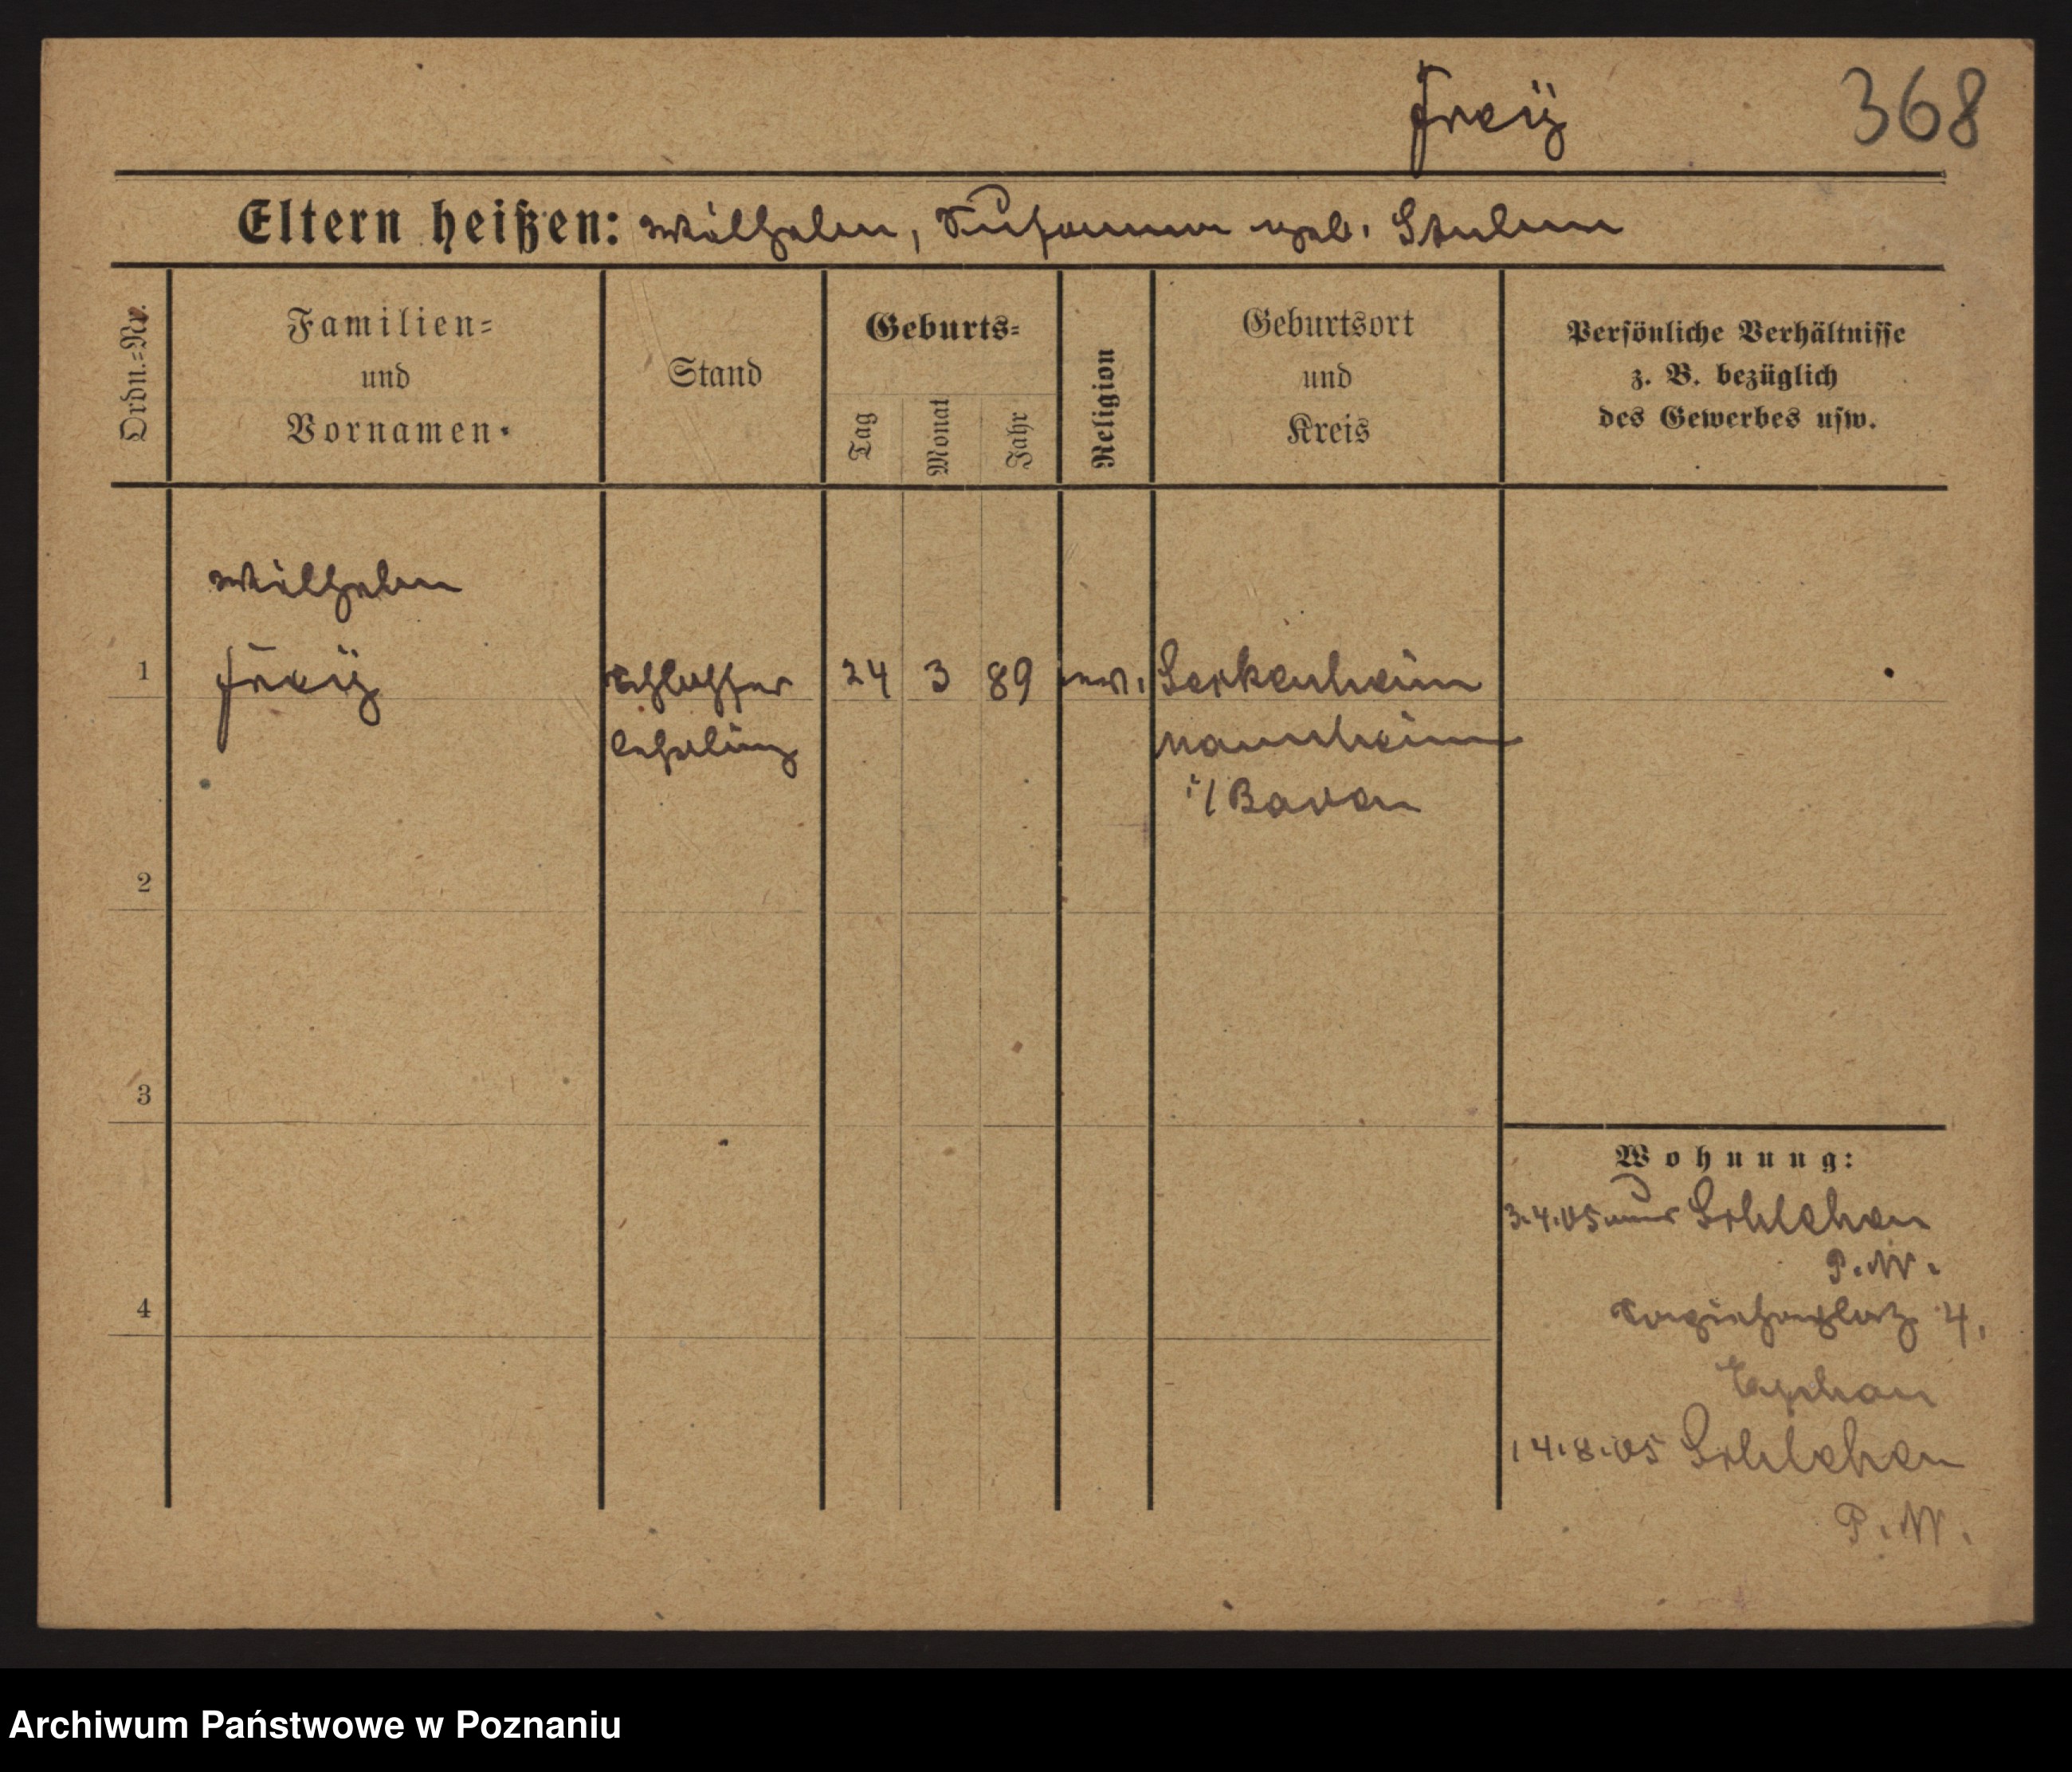 Freÿ
368
Eltern heißen: Wilhelm, Susanna geb.
Ordn.=Nr.
Familien=
und
Vornamen.
Stand
Geburts=
Tag
Monat
Jahr
Religion
Geburtsort
und
Kreis
Persönliche Verhältnisse
z. B. bezüglich
des Gewerbes usw.
Wilhelm
1 Freÿ Schlosser 24 3 89 ev. Seckenheim
lehrling Mannheim
i/ Baden
2
3
4
Wohnung:
3.4.05 aus Schlehen
P.W.
Sapiehaplatz 4.
14.8.05 Schlehen
P.W.
Archiwum Państwowe w Poznaniu